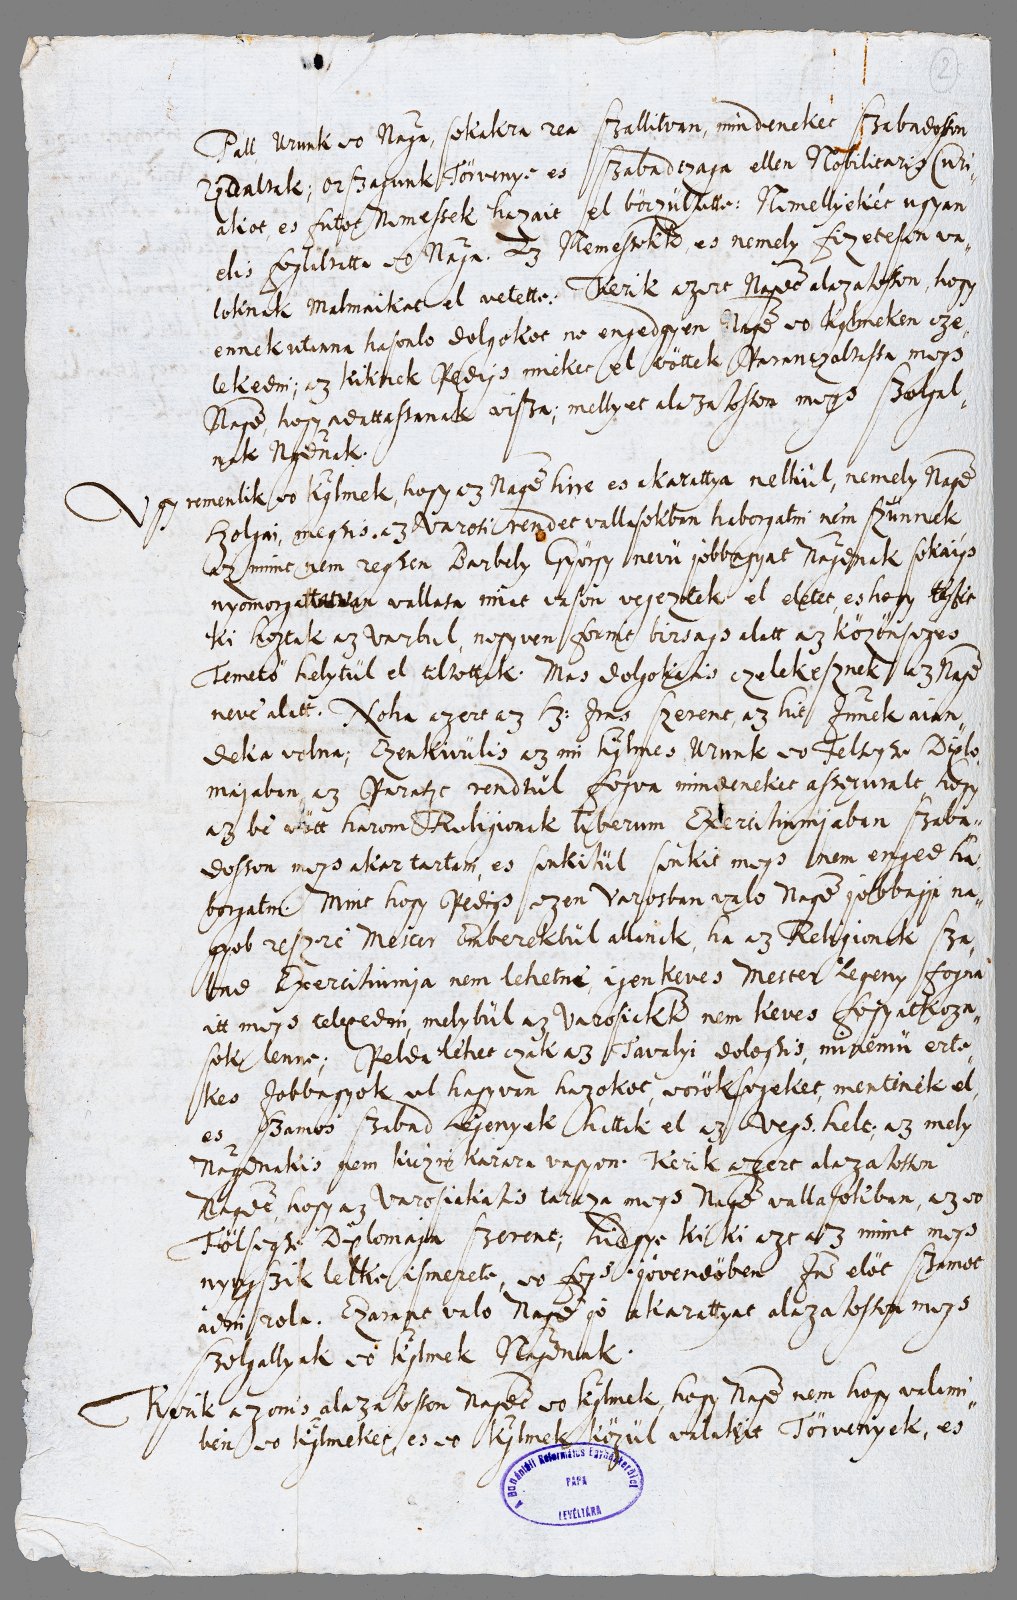 2
Pall Urunk eo Naga, sokakra rea szallitvan, mindeneket szabadosson
ország​unk Törvenye es szabadczaga ellen Nobilitaris Curi-
akot, es futot Nemessek hazait el Nemellyekét ugyan
elis foglaltatta eo Naga. Az Nemessekk es nemely fizetesen va-
loknak Malmaikat el vetette: Kerik azert Nagdt alazatosson, hogy
ennek utanna hasonlo dolgokot ne engedgyen Nagd eo kglmeken cze-
lekedni; az kiknek Pedigh miéket el vöttek Paranczoltassa megh
Nagd, hogy adattassanak visza; mellyet alazatosson megh szolgal-
nak Ngdnak.
Ugy remenlik eo kglmek, hogy az Nagd hire es akarattya nelkül, nemely Nagd
szolgai, meghis az Varosi rendet vallasokban haborgatni nem szünnek
az mint nem reghen Barbely György nevü jobbagyat Nagdnak sokaigh
nyomorgattatvan vallasa miat vason vegeztek el eletet, es hogy testét
ki hoztak az Varbul, negyven forint birsagh alatt az közönseges
Temető helytül el tiltottak. Mas dolgokatis czelekesznek az Nagd
neve alatt. Noha azert az Sz: Iras szerent, az hit Istnnek aian-
deka volna; Ezenkivülis az mi kglmes Urunk eo Felseghe Diplo-
majaban az Paraszt rendtül fogva mindeneket assecuralt, hogy
az bé vött harom Religionak liberum Exercitiumjaban szaba-
dosson megh akar tartani, es senkitül senkit megh nem enged ha-
borgatni. Mint hogy Pedigh ezen Varosban valo Nagd jobbagyi na-
gyob reszré Mester Emberekbül allanak, ha az Religionak sza-
bad Exercitiumja nem lehetne, igen keves Mester Legeny fogna
itt megh telepedni, melybül az Varosiakk nem keves fogyatkoza-
sok lenne; Pelda lehet czak az Tavalyi dologhis, minemü erte-
kes Jobbagyok el hagyvan hazokot, eoröksegeket, mentenek el,
es szamos szabad Legenyek hattak el az Vegh helt; az mely
Nagdnakis nem kiczin karara vagyon. Kerik azert alazatosson
Nagdt hogy az Varosiakatis tarcza megh Nagd vallasokban, az eo
Fölseghe Diplomaja szerent; hidgye ki ki azt az mint megh
nyugszik lelkiismerete, eo fogh jövendőben Istn előt szamot
adni rola. Ezarant valo Nagd jo akarattyat alazatosson megh
szolgallyak eo kglmek Nagdnak.
Kerik azonis alazatosson Nagdt eo kglmek, hogy Nagd nem hogy valami-
ben eo kglmeket, es eo kglmek közül valakit Törvenyek, es
A Dunántúli Református Egyházkerület
PÁPA
LEVÉLTÁRA